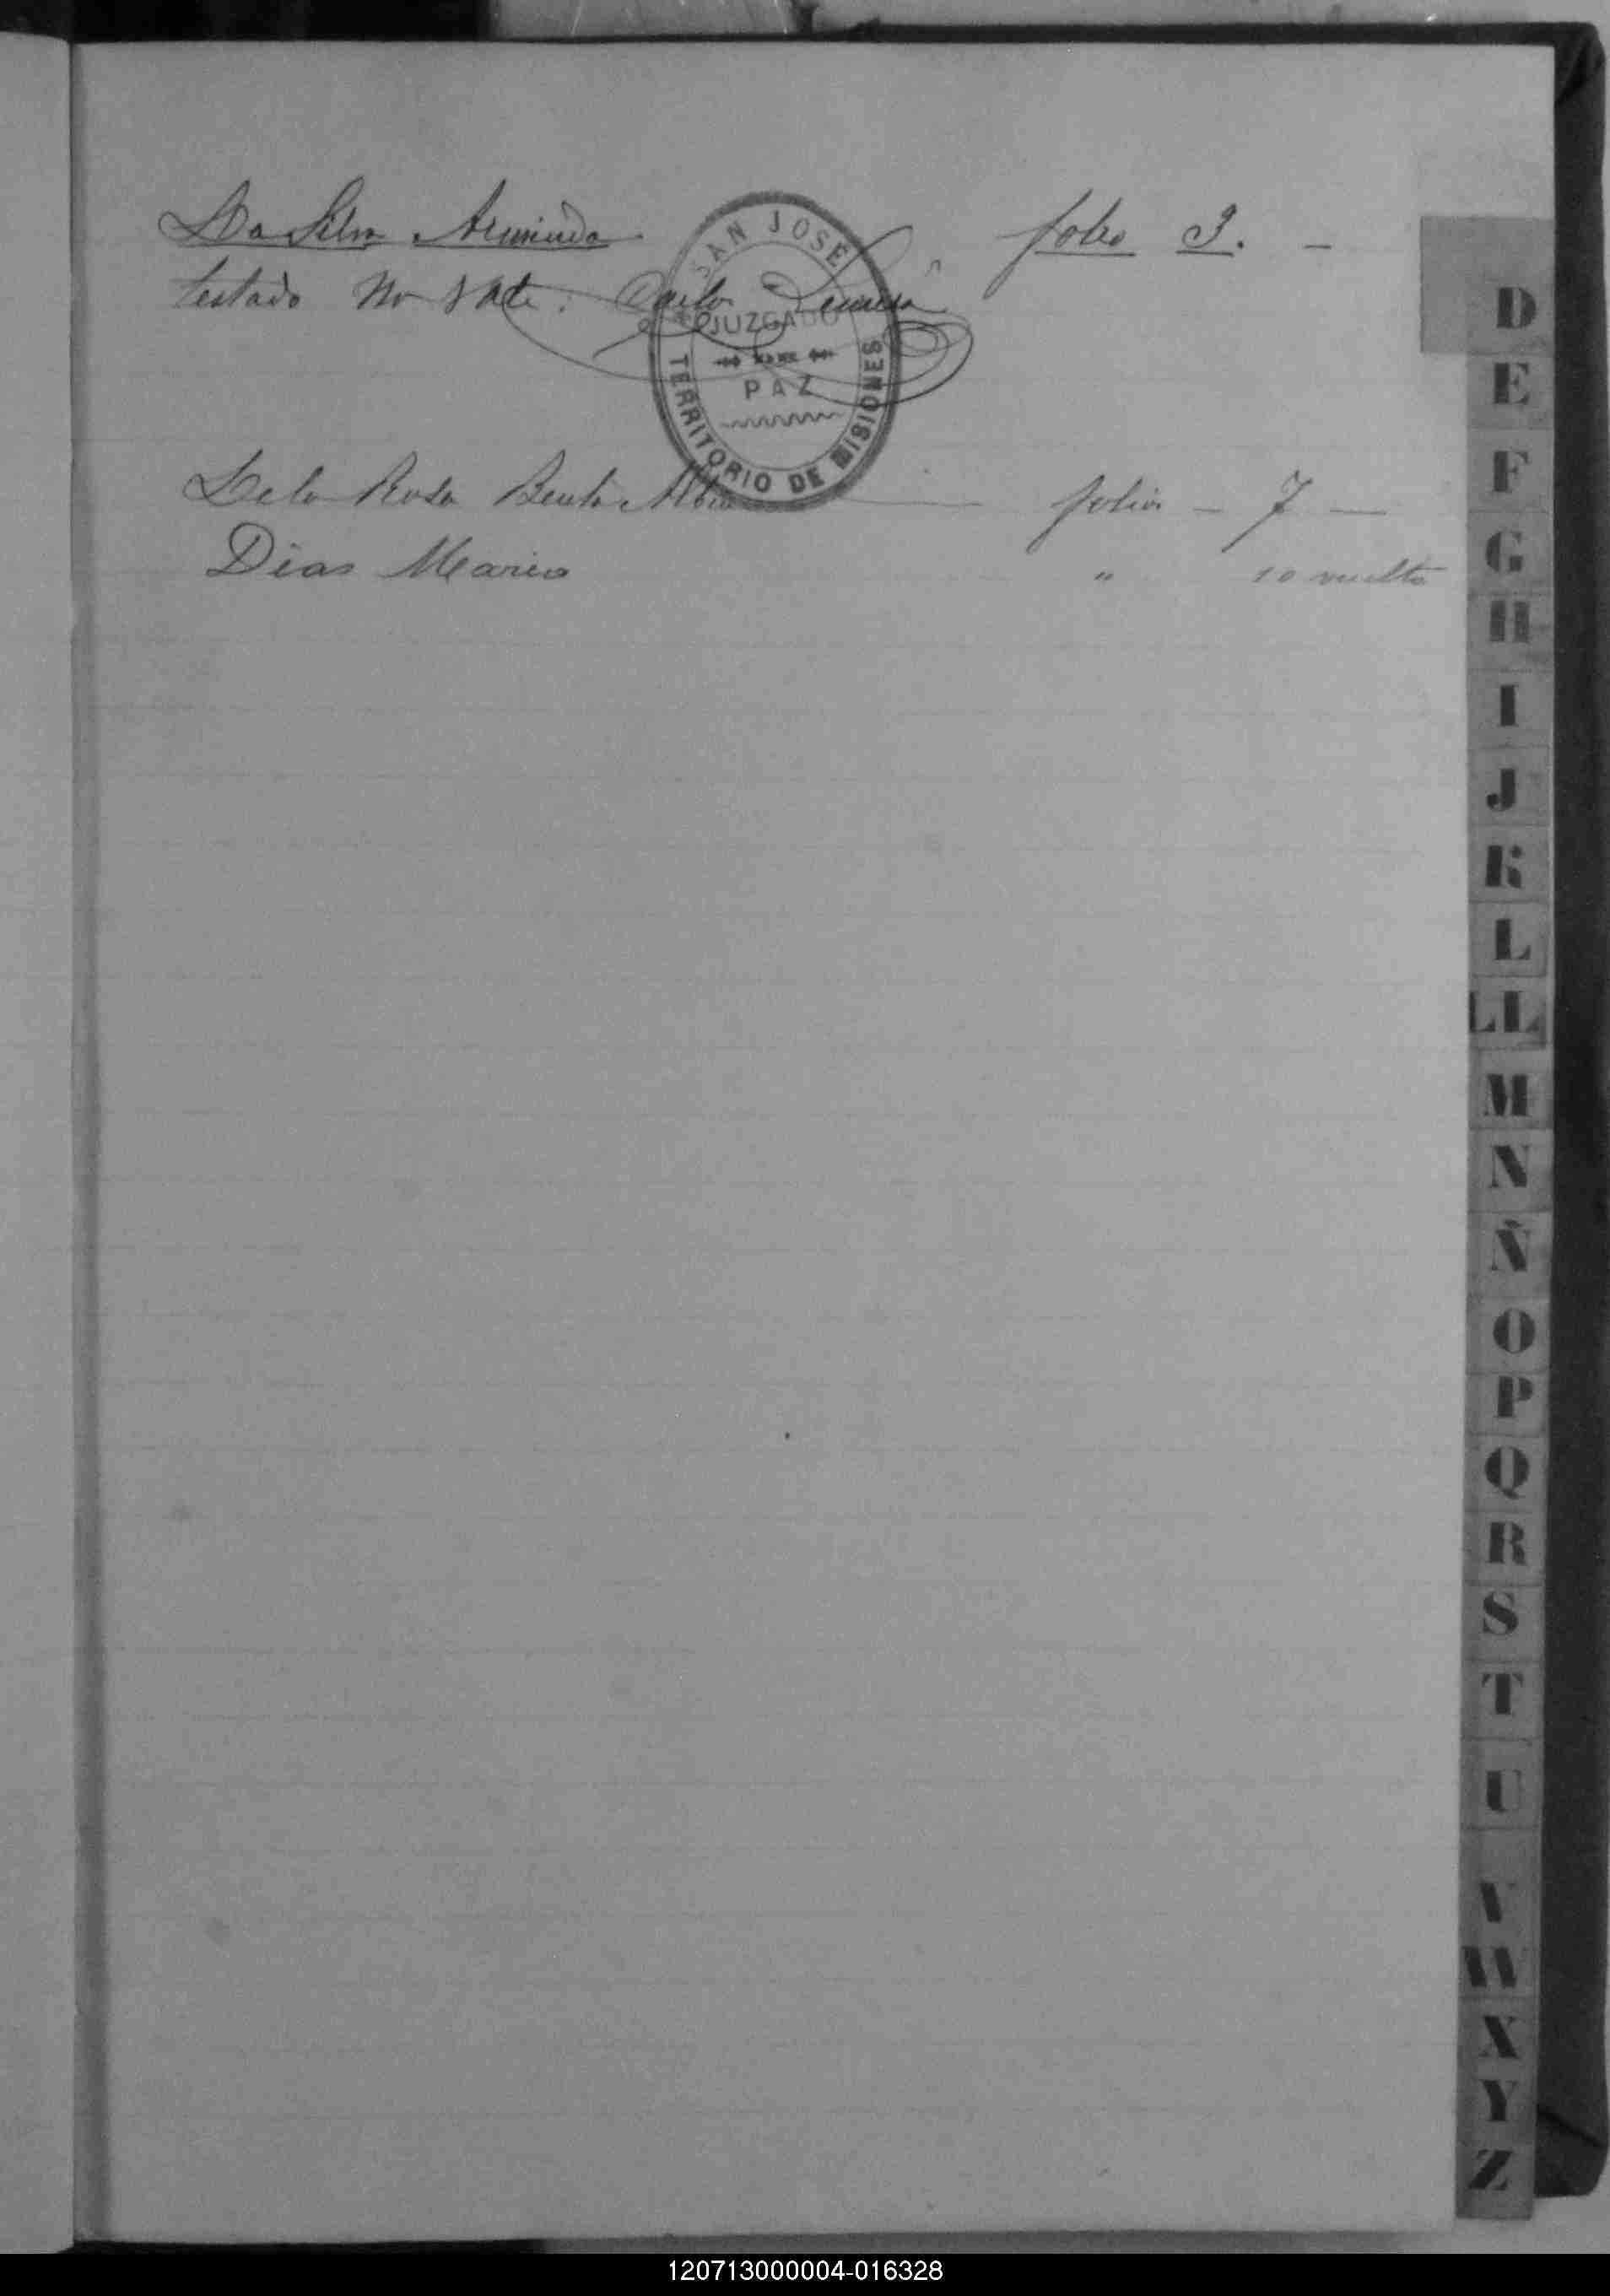 Da Silva Arminda folio 3. -
testado no vale. Carlos
SAN JOSÉ
JUZGADO
DE
PAZ
TERRITORIO DE MISIONES
De la Rosa Benta folio - 7 -
Dias Maria " 10 vuelta
D
E
F
G
H
I
J
K
L
LL
M
N
Ñ
O
P
Q
R
S
T
U
V
W
X
Y
Z
120713000004-016328